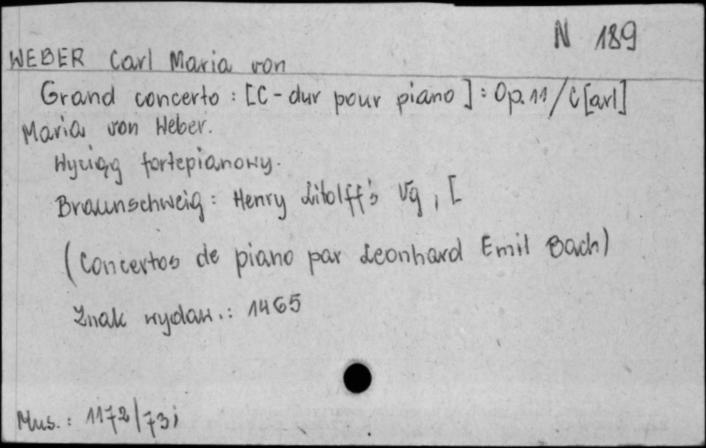 N 189
WEBER Carl Maria von
Grand concerto : [C-dur pour piano] : Op. 11 / C[arl]
Maria von Weber.
Wyciąg fortepianowy.
Braunschweig : Henry Litolff's Vg, [
(Concertos de piano par Leonhard Emil Bach)
Znak wydaw.: 1465
Mus.: 1172/73i